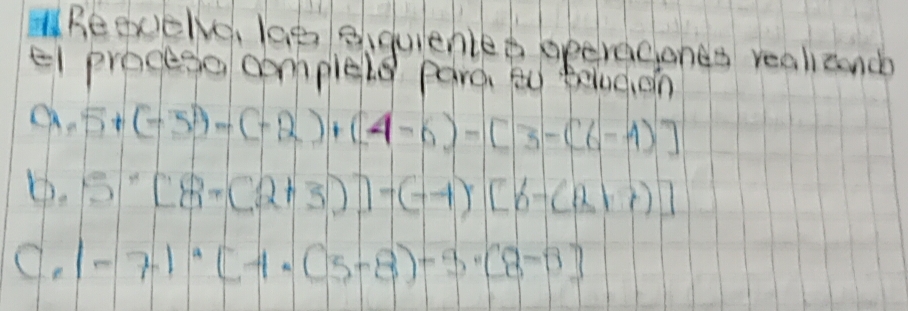 1 Resuelva, las siguientes operaciones realizando
el proceso completo para su solución
a. 5+(-3)-(-2)+(4-6)-[3-(6-1)]
b. 5·[8-(2+3)]-(-4)·[6-(2+7)]
c. |-7|·[4·(5-8)-3·(8-8]